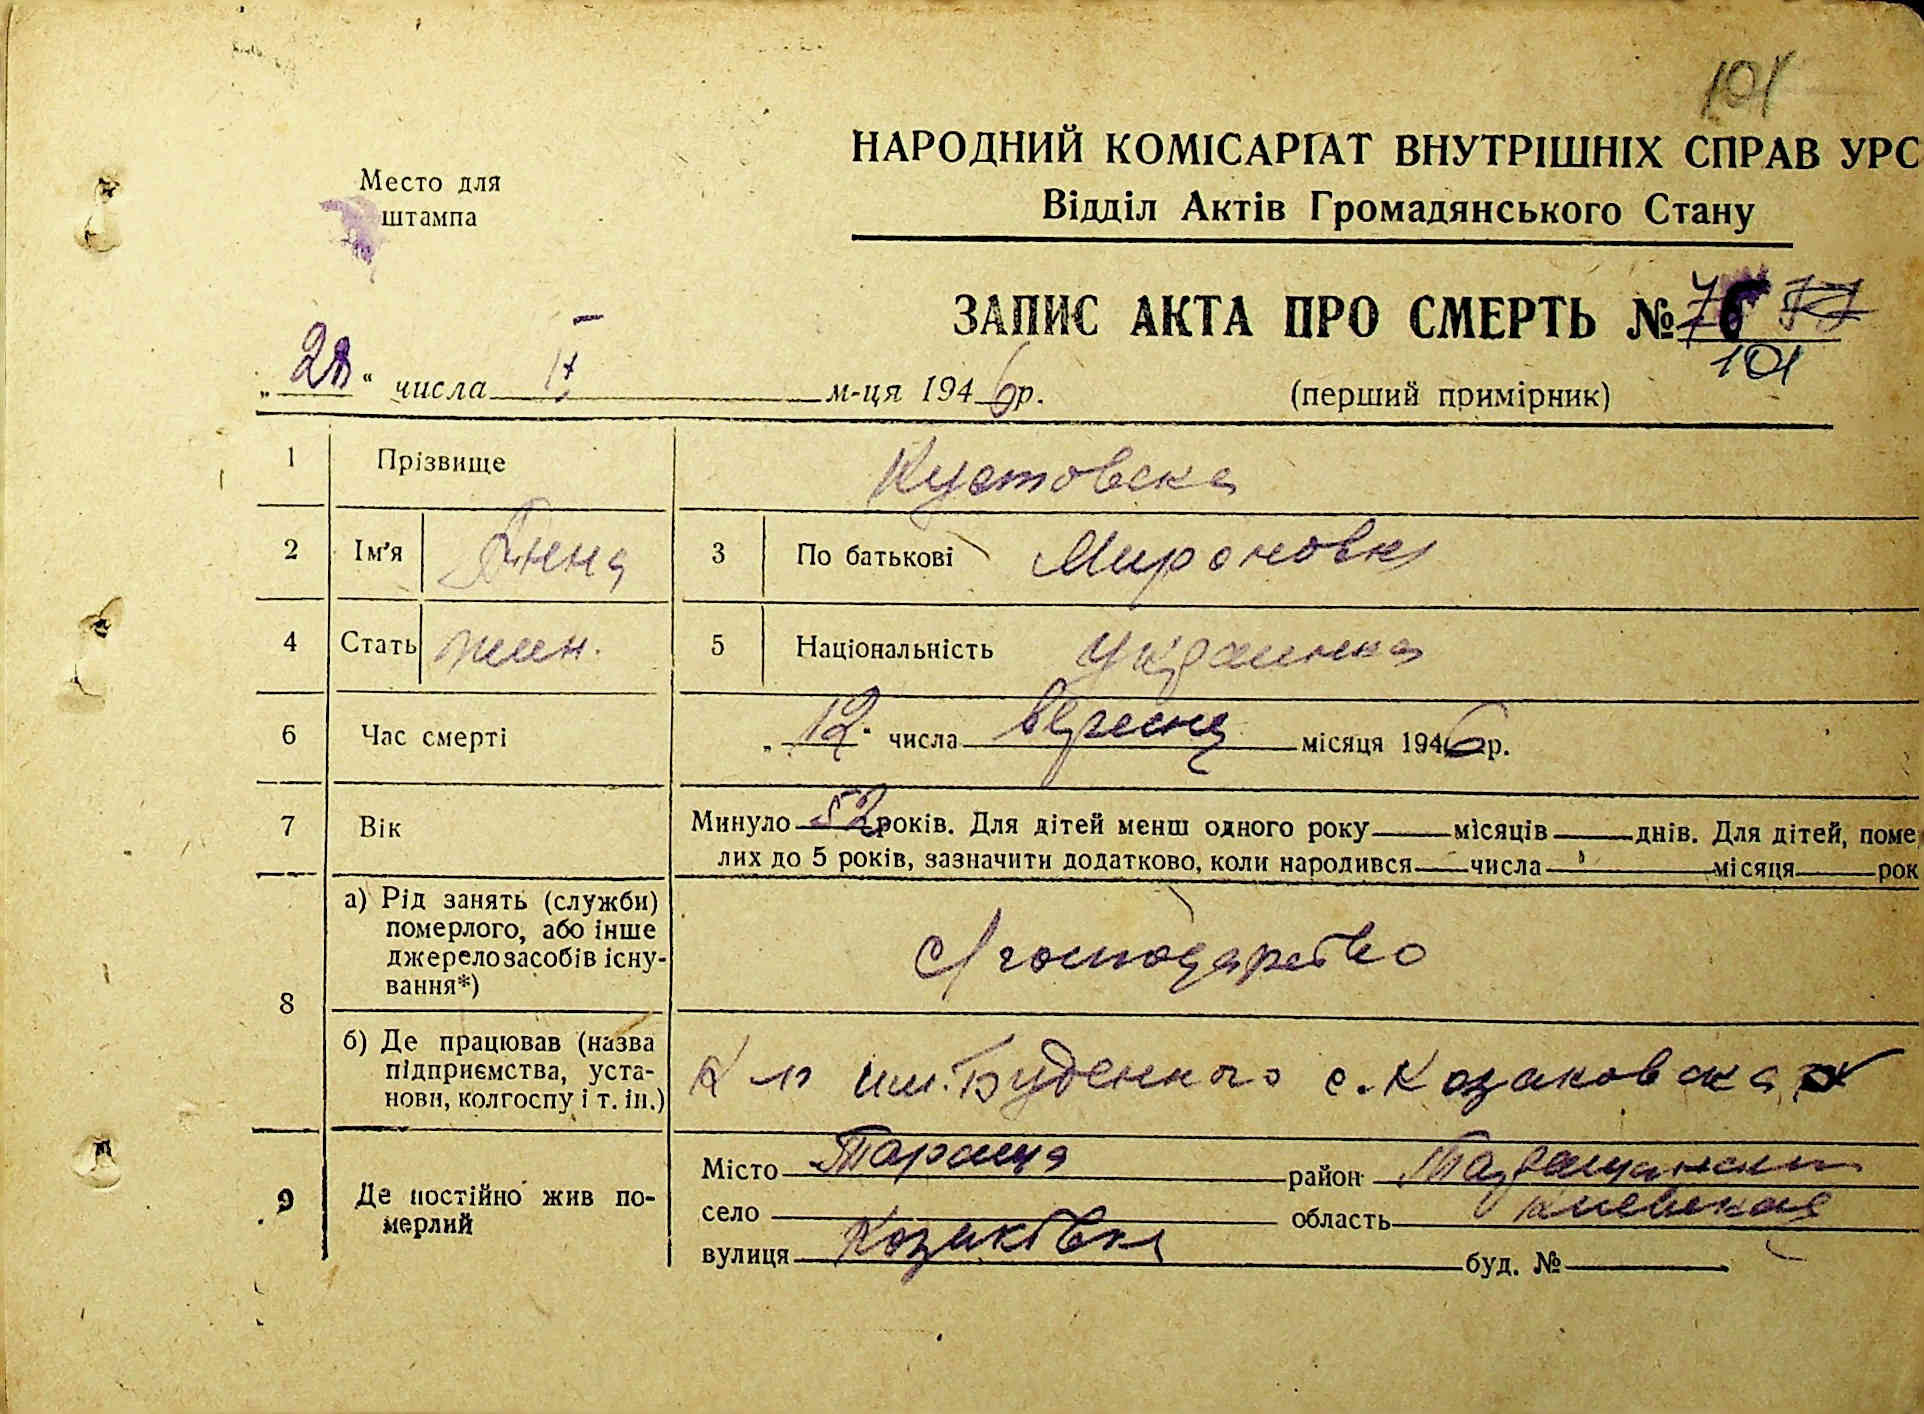 101
НАРОДНИЙ КОМІСАРІАТ ВНУТРІШНІХ СПРАВ УРС
Место для
штампа
Відділ Актів Громадянського Стану
ЗАПИС АКТА ПРО СМЕРТЬ № 76
101
„ “ числа м-ця 1946р.
(перший примірник)
1 Прізвище Кустовска
2 Ім'я Анна 3 По батькові Мироновна
4 Стать жин. 5 Національність украинка
6 Час смерті „12“ числа вересня місяця 1946р.
7 Вік Минуло 52 років. Для дітей менш одного року місяців днів. Для дітей, поме
лих до 5 років, зазначити додатково, коли народився числа місяця рок
8 а) Рід занять (служби)
померлого, або інше
джерело засобів існу-
вання*)
с/господарство
б) Де працював (назва
підприємства, уста-
нови, колгоспу і т. ін.)
им. Буденного с. Козаковка
9 Де постійно жив по-
мерлий
Місто Тараща район Таращански
село область Киевская
вулиця Козаківка буд. №